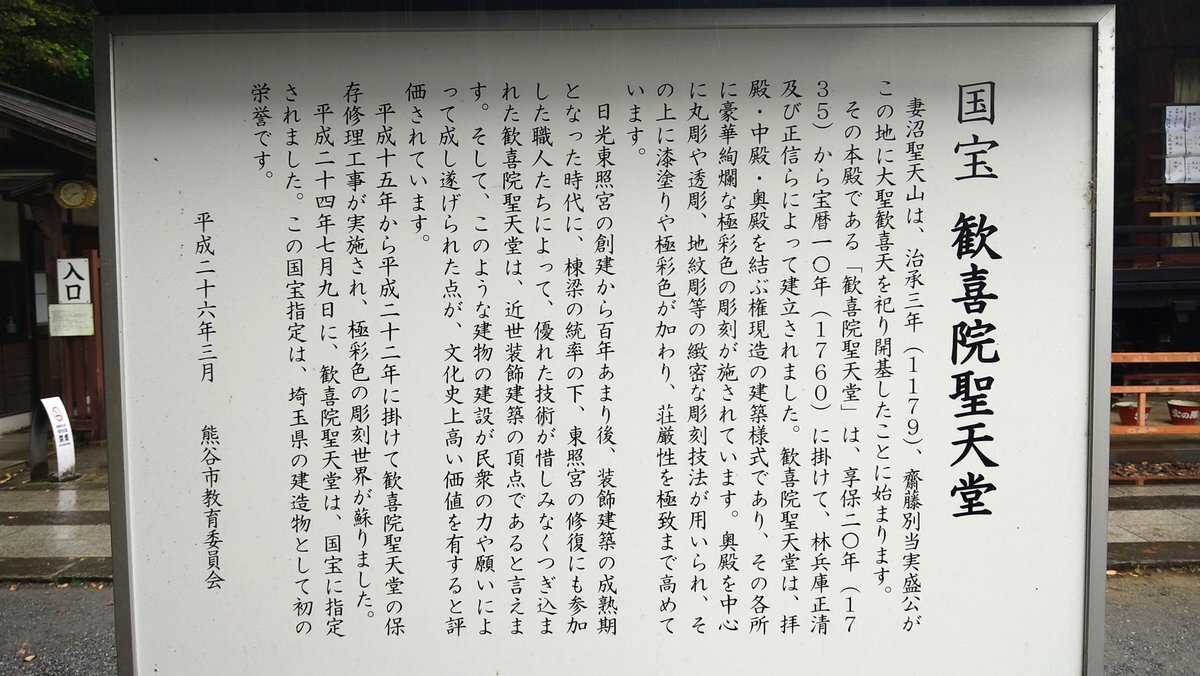 国宝 歓喜院聖天堂
妻沼聖天山は、治承三年（1179）、齋藤別当実盛公が
この地に大聖歓喜天を祀り開基したことに始まります。
その本殿である「歓喜院聖天堂」は、享保二〇年（17
35）から宝暦一〇年（1760）に掛けて、林兵庫正清
及び正信らによって建立されました。歓喜院聖天堂は、拝
殿・中殿・奥殿を結ぶ権現造の建築様式であり、その各所
に豪華絢爛な極彩色の彫刻が施されています。奥殿を中心
に丸彫や透彫、地紋彫等の緻密な彫刻技法が用いられ、そ
の上に漆塗りや極彩色が加わり、荘厳性を極致まで高めて
います。
日光東照宮の創建から百年あまり後、装飾建築の成熟期
となった時代に、棟梁の統率の下、東照宮の修復にも参加
した職人たちによって、優れた技術が惜しみなくつぎ込ま
れた歓喜院聖天堂は、近世装飾建築の頂点であると言えま
す。そして、このような建物の建設が民衆の力や願いによ
って成し遂げられた点が、文化史上高い価値を有すると評
価されています。
平成十五年から平成二十二年に掛けて歓喜院聖天堂の保
存修理工事が実施され、極彩色の彫刻世界が蘇りました。
平成二十四年七月九日に、歓喜院聖天堂は、国宝に指定
されました。この国宝指定は、埼玉県の建造物として初の
栄誉です。
平成二十六年三月 熊谷市教育委員会
入口